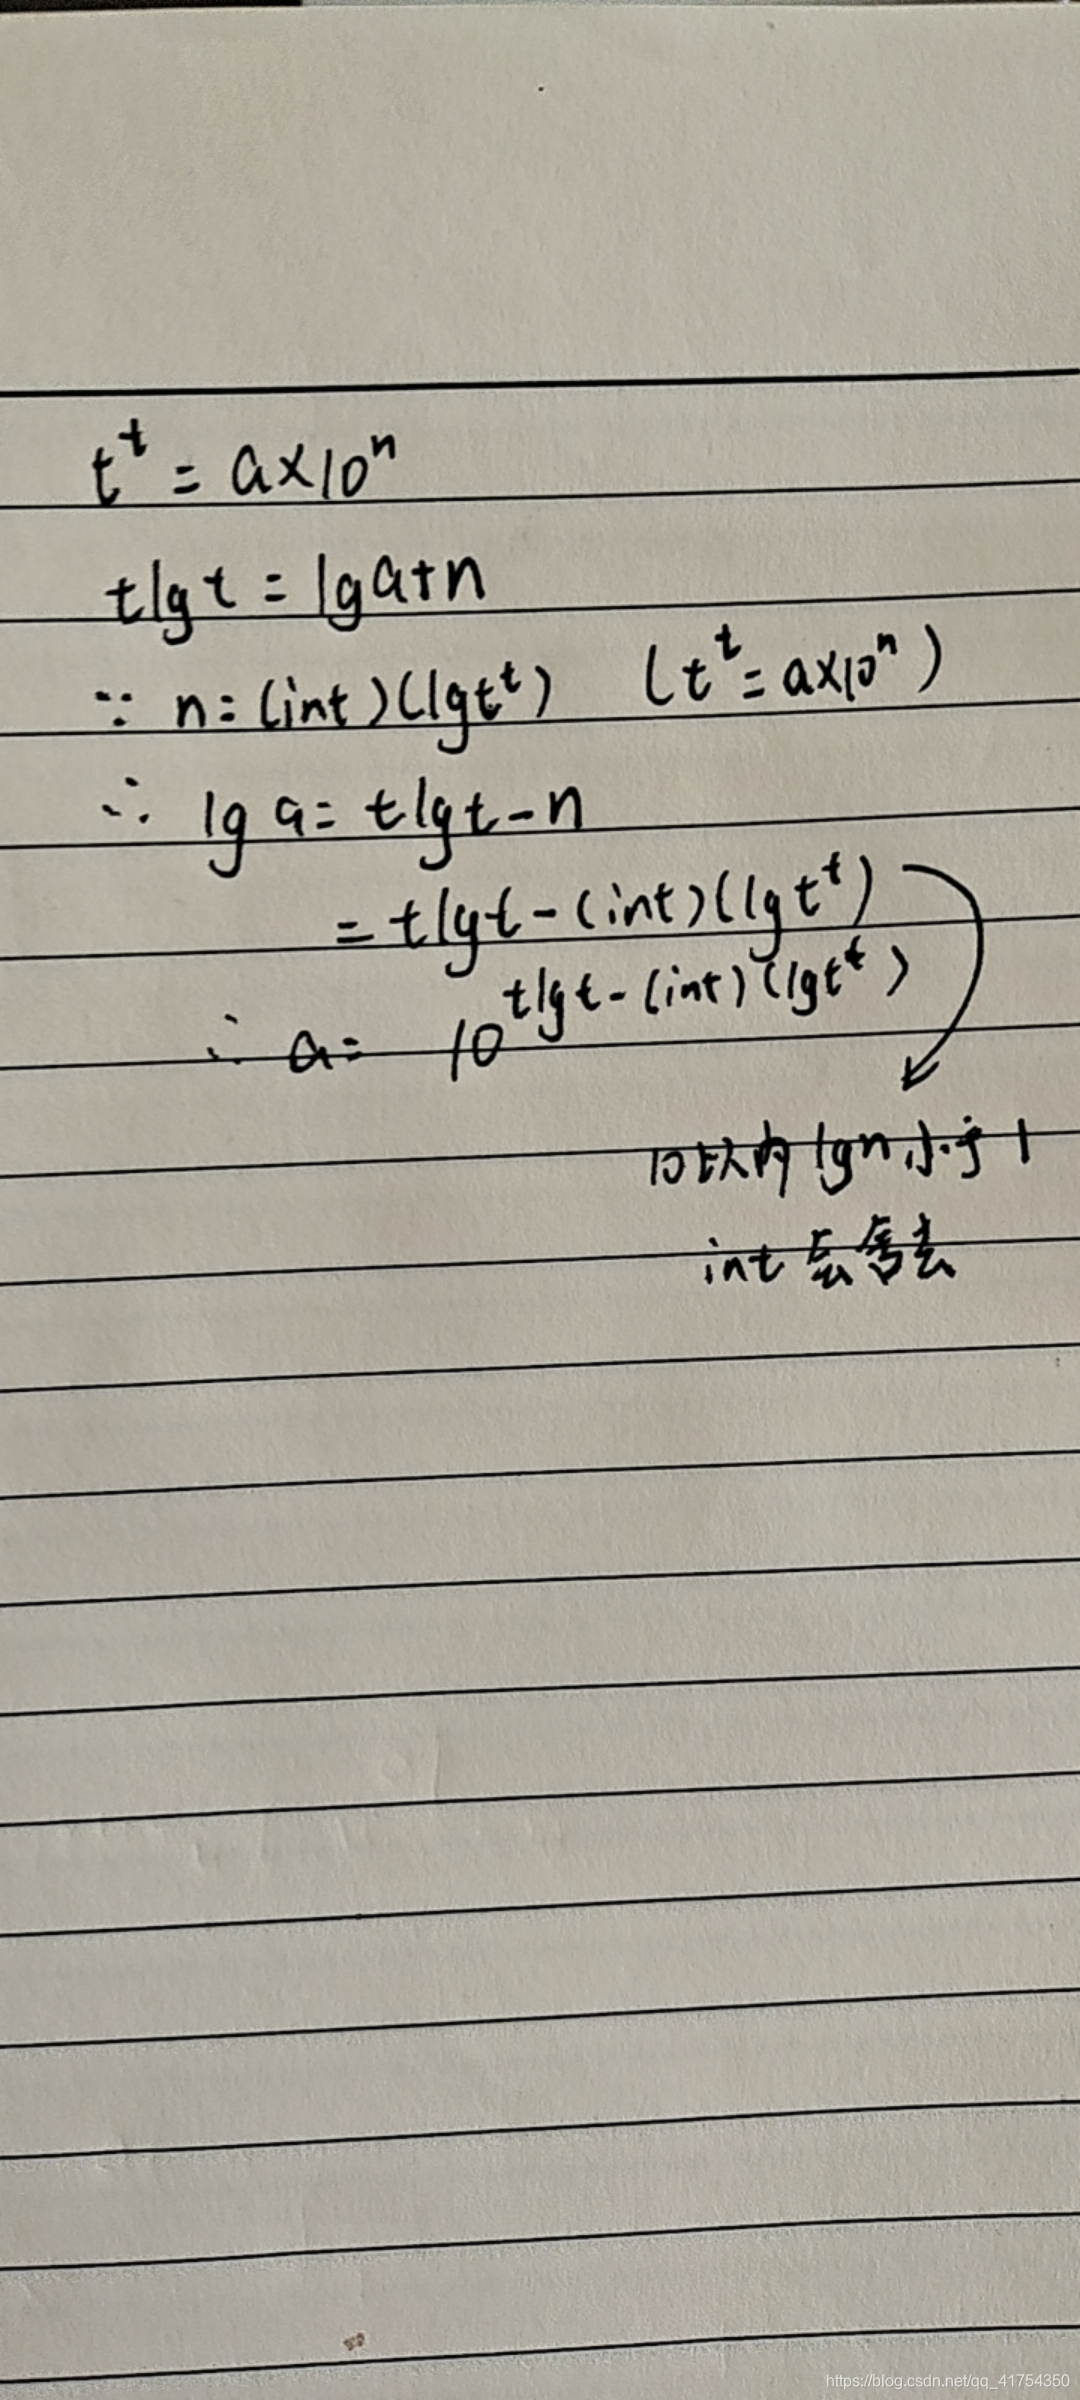 t^t = a×10^n
tlgt = lga+n
∵ n=(int)(lgt^t) (t^t=a×10^n)
∴ lg a= tlgt-n
= tlgt-(int)(lgt^t)
∴ a= 10^{tlgt-(int)(lgt^t)}
10以内lgn小于1
int会舍去
https://blog.csdn.net/qq_41754350